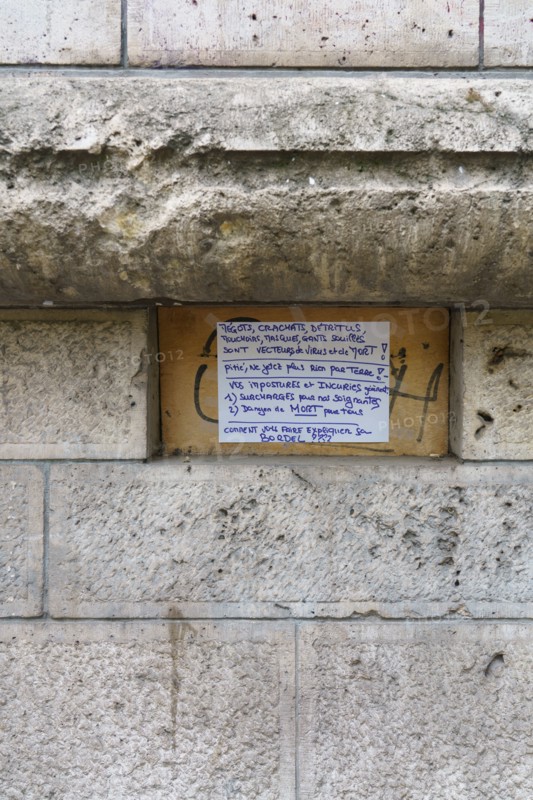 MEGOTS, CRACHATS, DETRITUS,
MOUCHOIRS, MASQUES, GANTS SOUILLÉS
SONT VECTEURS de VIRUS et de MORT !
Pitié, NE jetez plus Rien par TERRE !
VOS IMPOSTURES et INCURIES génèrent
1) SURCHARGES pour nos soignantes
2) Danger de MORT pour tous
COMMENT VOUS FAIRE EXPLIQUER Sa
BORDEL ???
PHOTO12